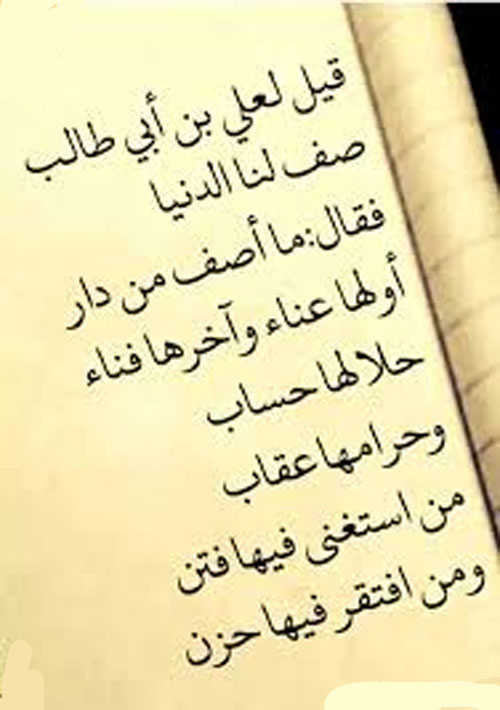 قيل لعلي بن أبي طالب
صف لنا الدنيا
فقال: ما أصف من دار
أولها عناء وآخرها فناء
حلالها حساب
وحرامها عقاب
من استغنى فيها فتن
ومن افتقر فيها حزن